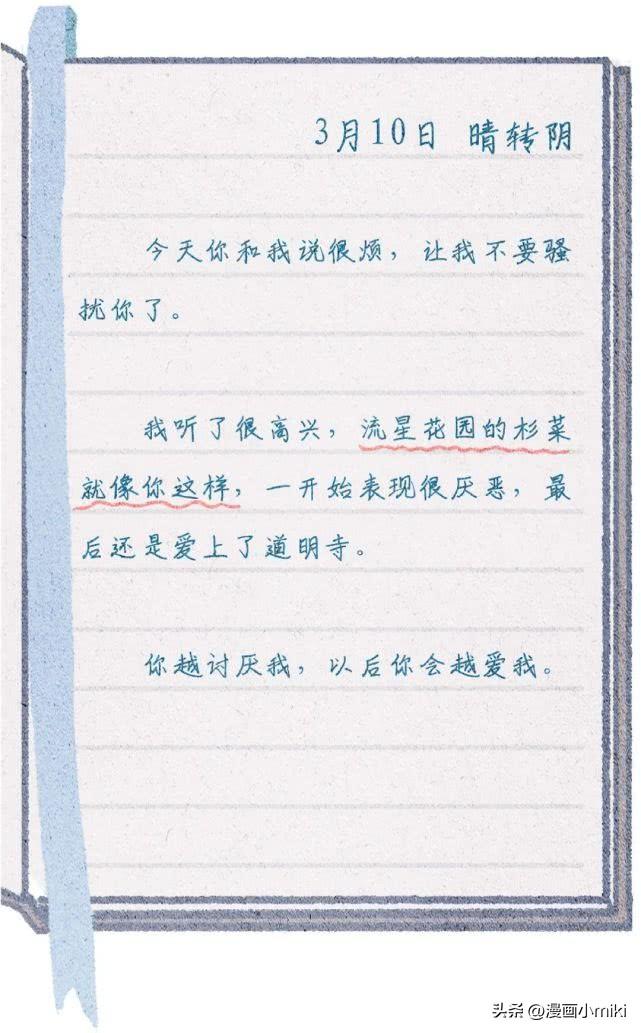 3月10日 晴转阴
今天你和我说很烦，让我不要骚
扰你了。
我听了很高兴，流星花园的杉菜
就像你这样，一开始表现很厌恶，最
后还是爱上了道明寺。
你越讨厌我，以后你会越爱我。
头条 @漫画小miki